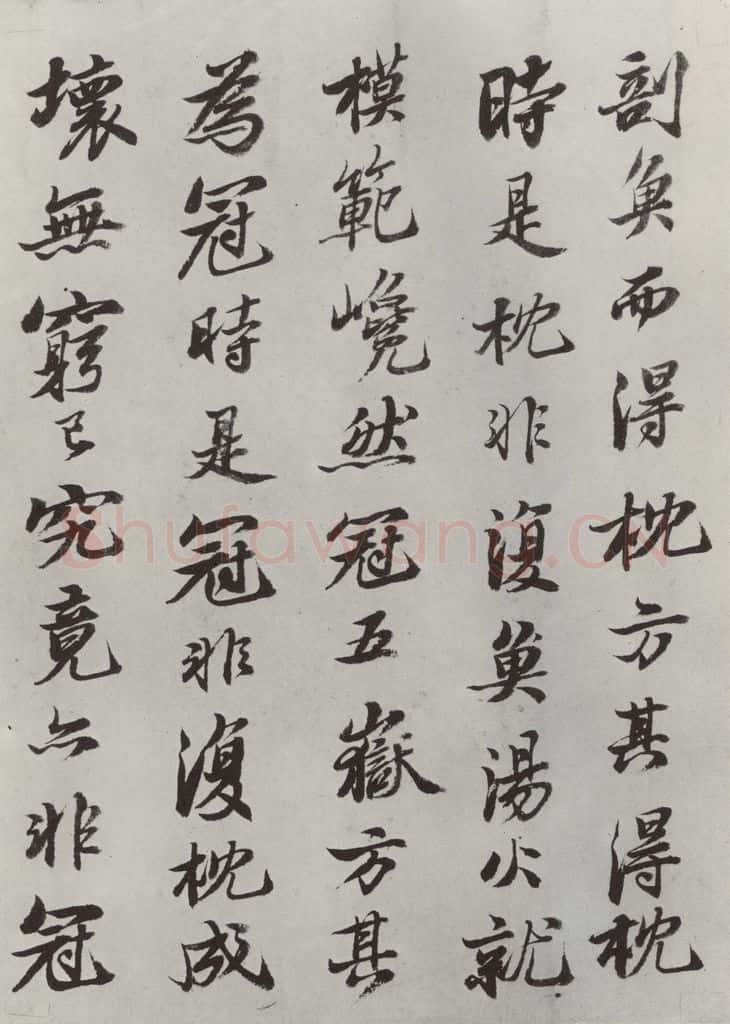 剖魚而得枕方其得枕
時是枕非復魚湯火就
模範巉然冠五嶽方其
為冠時是冠非復枕成
壞無窮已究竟亦非冠
Shufawang.CN